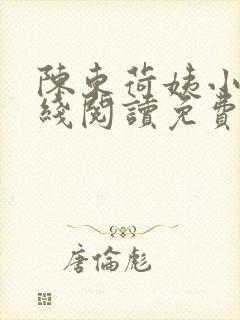 陳東荷姨小
綫閱讀免費
唐倫彪